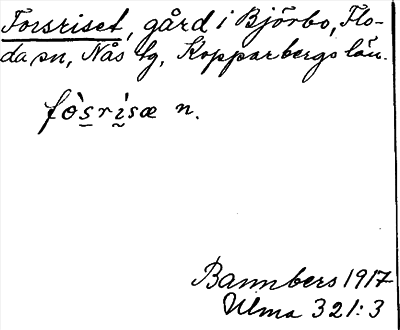 Forsriset, gård i Björbo, Flo-
da sn, Nås tg, Kopparbergs län.
fò̀s̰rḭ̀sæ n.
Bannbers 1917
Ulma 321:3